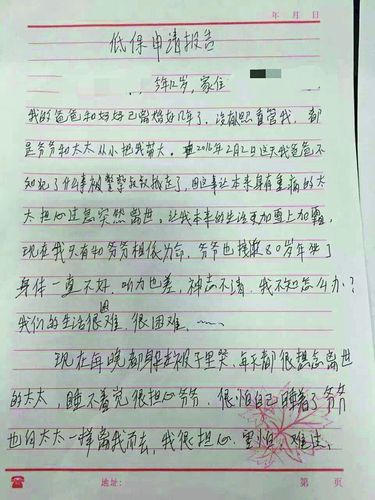 年 月 日
低保申请报告
, 今年12岁, 家住
我的爸爸和妈妈已离婚好几年了, 没有照看管我, 都
是爷爷和太太从小把我带大。 2016年2月2日这天我爸爸不
知犯了什么事被警察叔叔抓走了, 因这事让本来身有重病的太
太担心过急突然离世。让我本来的生活更加雪上加霜,
现在我只有和爷爷相依为命, 爷爷也接近80岁年纪了
身体一直不好, 听力也差, 神志不清, 我不知怎么办?
我们的生活很困难, 很困难,
现在每晚都躲在被子里哭, 每天都很想念离世
的太太, 睡不着觉很担心爷爷, 很怕自己睡着了爷爷
也向太太一样离我而去, 我很担心, 害怕, 难过,
地址: 第 页